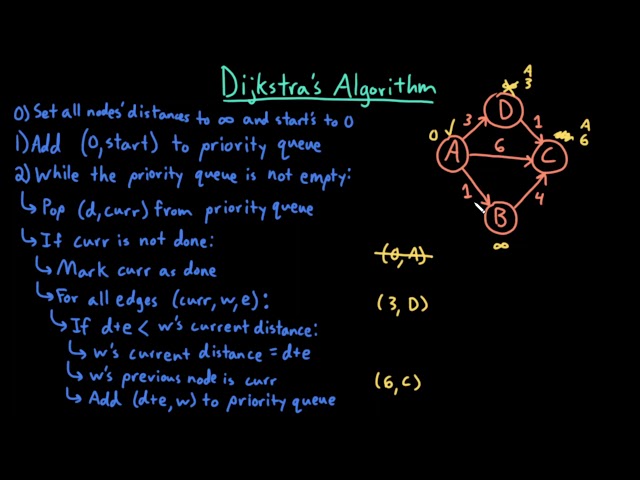 Dijkstra's Algorithm
0) Set all nodes' distances to ∞ and start's to 0
1) Add (0, start) to priority queue
2) While the priority queue is not empty:
↳ Pop (d, curr) from priority queue
↳ If curr is not done:
↳ Mark curr as done
↳ For all edges (curr, w, e):
↳ If d+e < w's current distance:
↳ w's current distance = d+e
↳ w's previous node is curr
↳ Add (d+e, w) to priority queue
A
3
D
0
3
1
A
6
C
A
6
1
4
B
∞
(0, A)
(3, D)
(6, C)